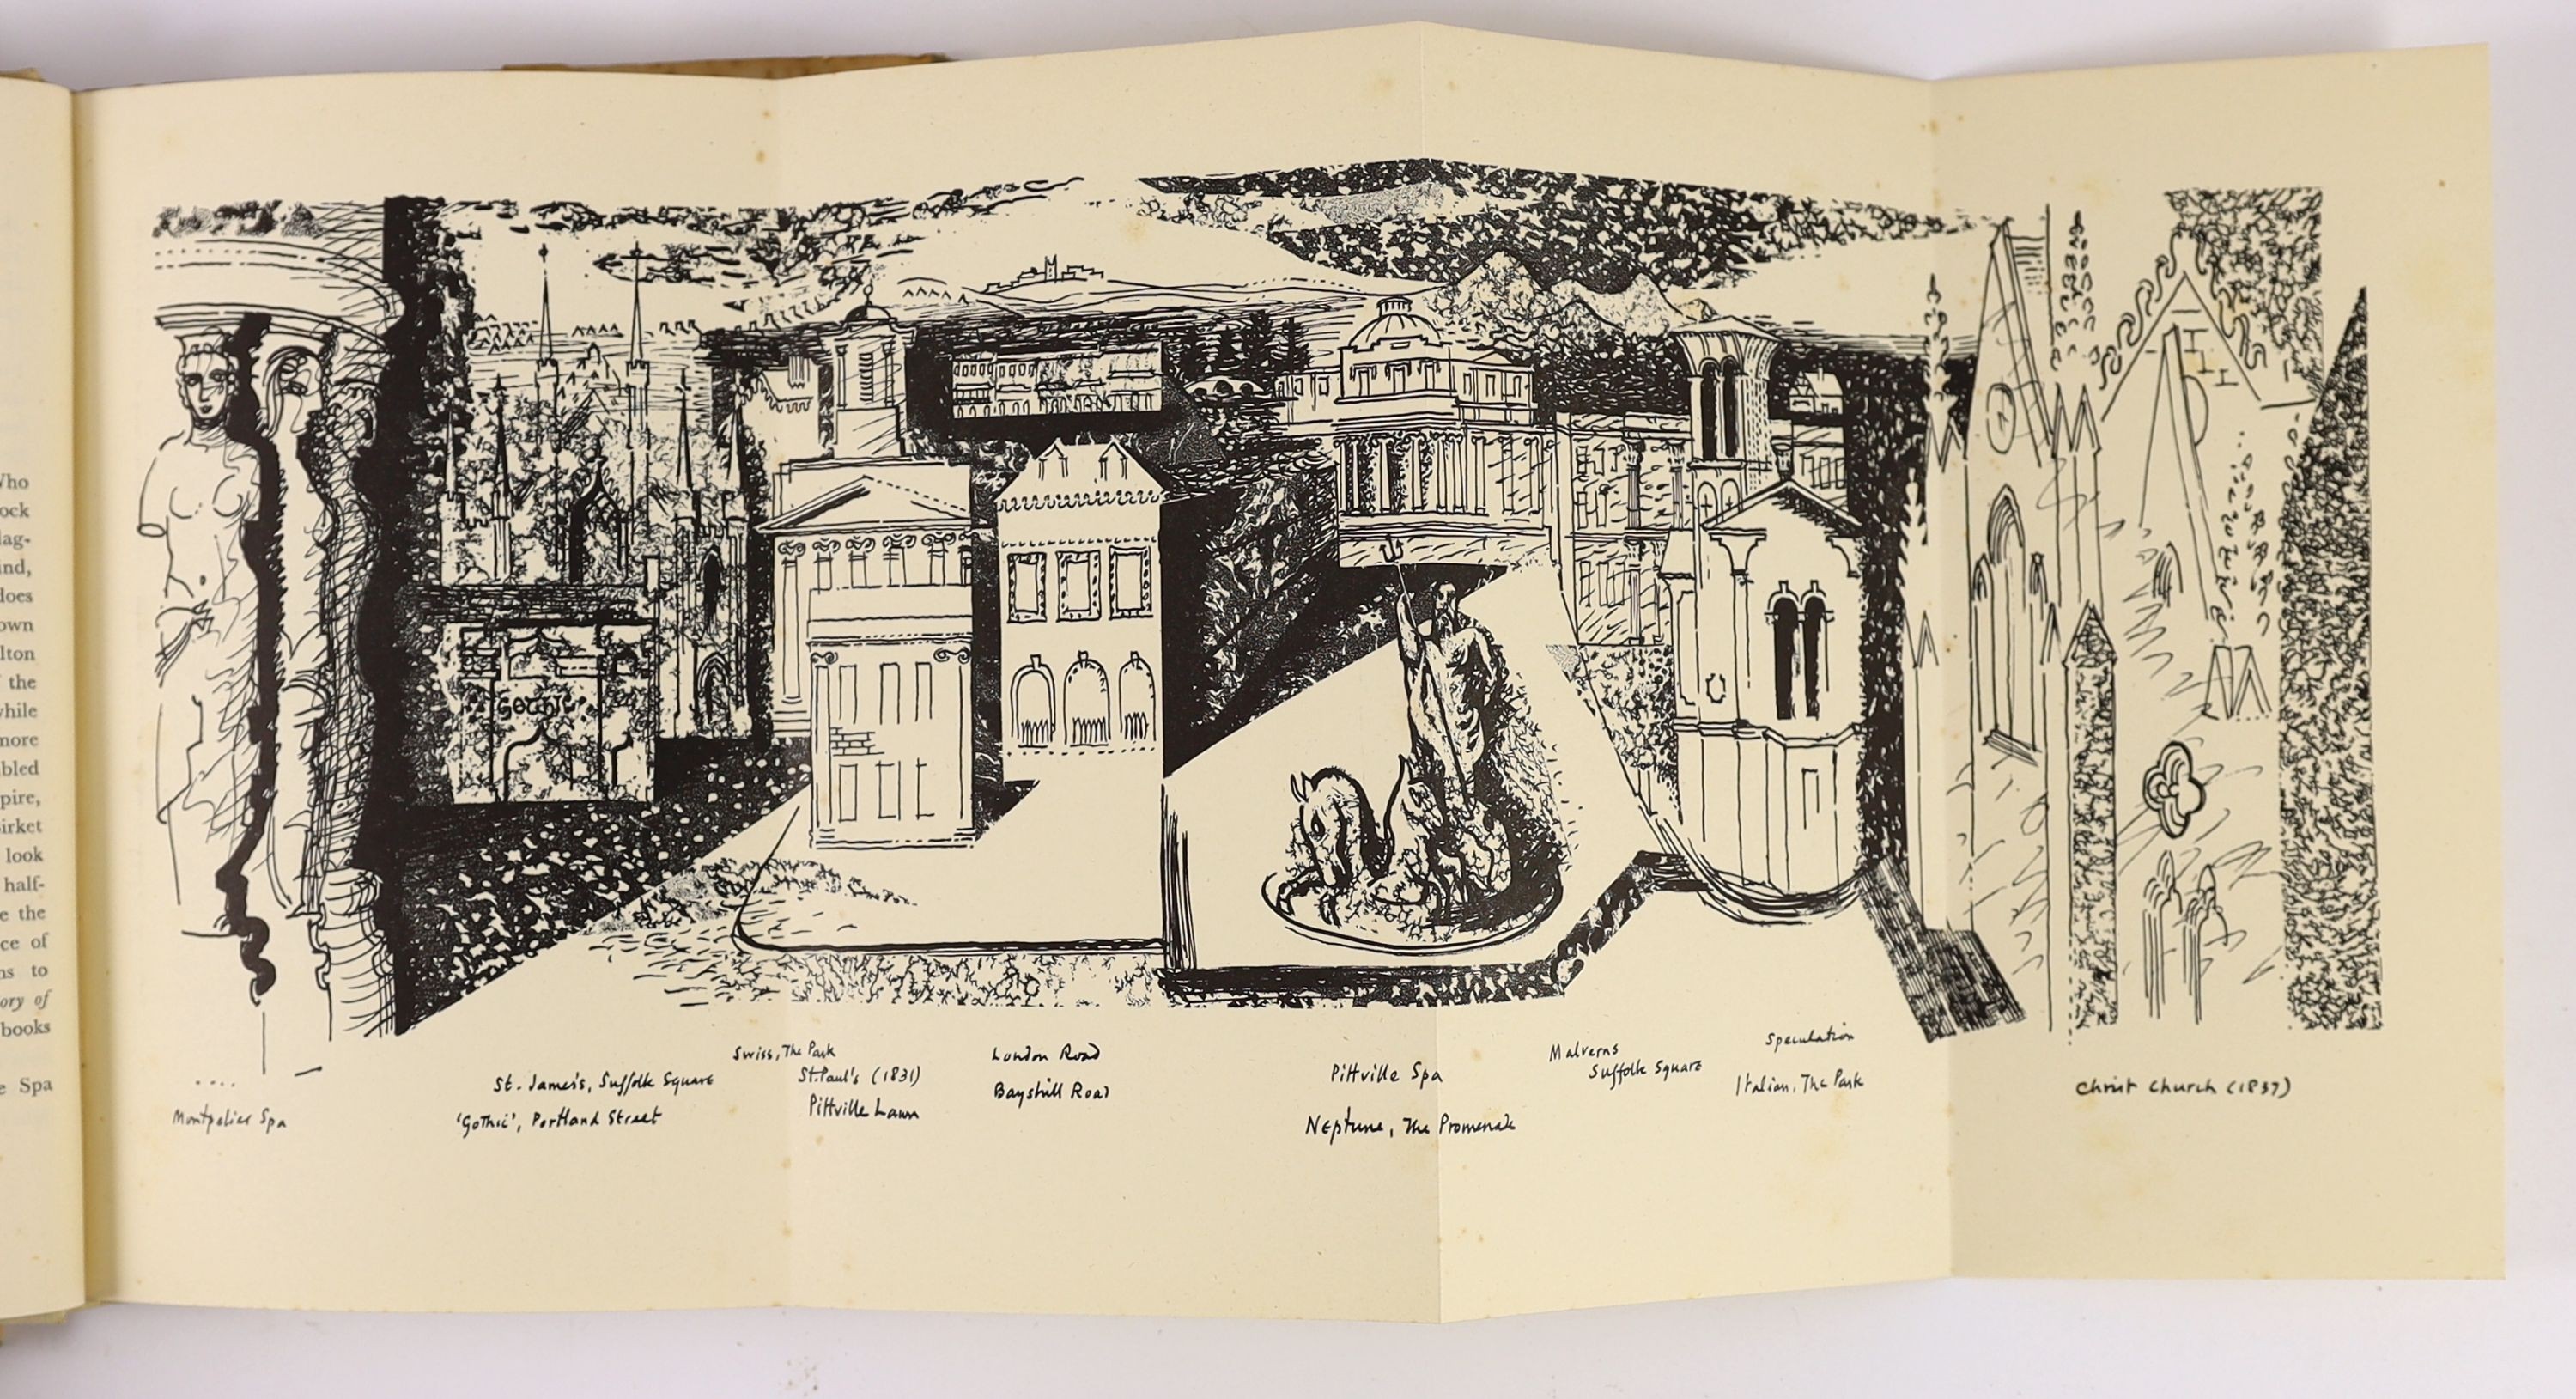 Who
ock
lag-
and,
does
own
lton
the
while
more
bled
spire,
Birket
look
half-
e the
ce of
ns to
ory of
books
e Spa
Gothic
Swiss, The Park
London Road
Malverns
Speculation
St. James's, Suffolk Square
St. Paul's (1831)
Pittville Spa
Suffolk Square
Italian, The Park
Christ Church (1837)
Montpelier Spa
'Gothic', Portland Street
Pittville Lawn
Bayshill Road
Neptune, The Promenade